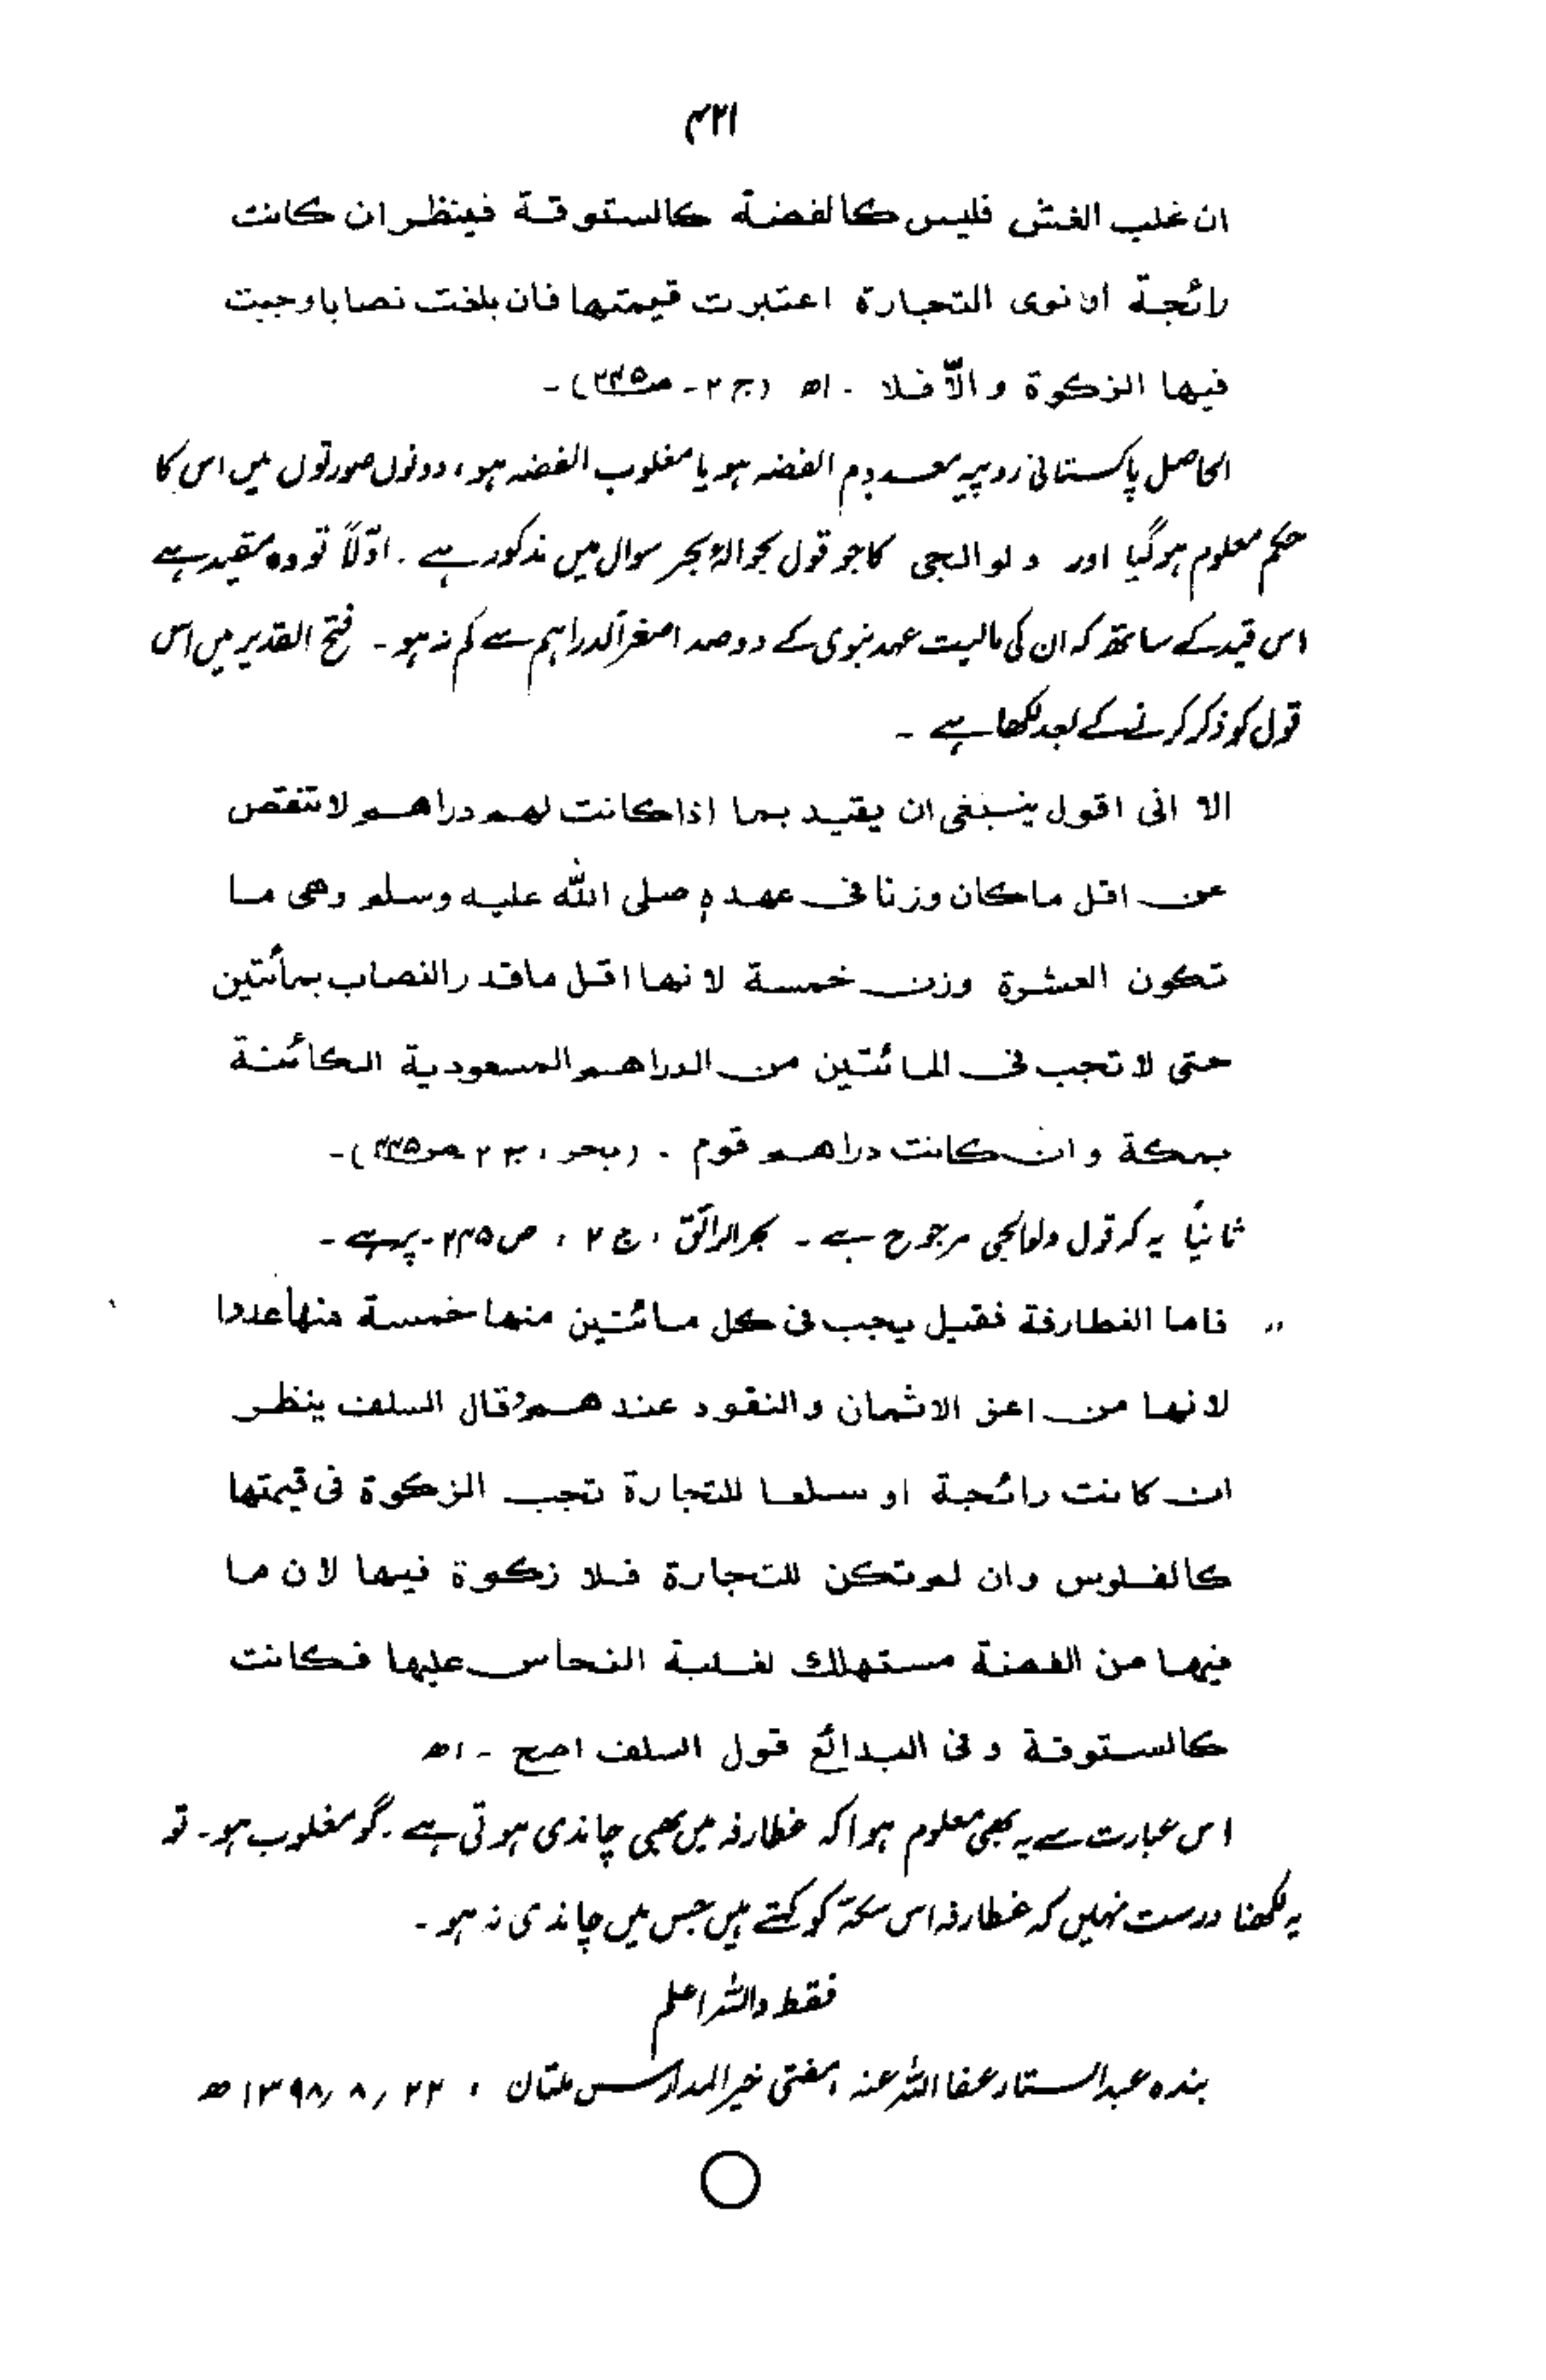 ۴۲۱
ان غلب الغش فليس كالفضة كالستوقة فينظر ان كانت
رائجة او نوى التجارة اعتبرت قيمتها فان بلغت نصابا وجبت
فيها الزكوة و الّا فلا ۔ اھ (ج ۲ ۔ ص۲۴۵) ۔
الحاصل پاکستانی روپیہ معدوم الفضہ ہو یا مغلوب الفضہ ہو، دونوں صورتوں میں اس کا
حکم معلوم ہوگیا اور ولوالجی کا جو قول بحوالۂ بحر سوال میں مذکور ہے ۔ اوّلاً تو وہ مقید ہے
اس قید کے ساتھ کہ ان کی مالیت عہد نبوی کے دو صد اصغر الدراہم سے کم نہ ہو ۔ فتح القدیر میں اس
قول کو ذکر کرنے کے بعد لکھا ہے ۔
الا انى اقول ينبغى ان يقيد بما اذا كانت لهم دراهم لا تنقص
عن اقل ما كان وزنا فى عهده صلى الله عليه وسلم وهى ما
تكون العشرة وزن خمسة لانها اقل ما قدر النصاب بمأتين
حتى لا تجب فى المائتين من الدراهم المسعودية الكائنة
بمكة وان كانت دراهم قوم ۔ (بحر، ج ۲ ص۲۴۵) ۔
ثانیاً یہ کہ قول ولوالجی مرجوح ہے ۔ بحر الرائق ، ج ۲ ، ص ۲۴۵ ۔ پر ہے ۔
" فاما الغطارفة فقيل يجب فى كل مائتين منها خمسة منها عددا
لانها من اعز الاثمان والنقود عندهم وقال السلف ينظر
ان كانت رائجة او سلعا للتجارة تجب الزكوة فى قيمتها
كالفلوس وان لم تكن للتجارة فلا زكوة فيها لان ما
فيها من الفضة مستهلك لغلبة النحاس عليها فكانت
كالستوقة و فى البدائع قول السلف اصح ۔ اھ
اس عبارت سے یہ بھی معلوم ہوا کہ غطارفہ میں بھی چاندی ہوتی ہے ۔ گو مغلوب ہو ۔ تو
یہ لکھنا درست نہیں کہ غطارفہ اس سکّہ کو کہتے ہیں جس میں چاندی نہ ہو ۔
فقط واللہ اعلم
بندہ عبد الستار عفا اللہ عنہ ، مفتی خیر المدارس ملتان ، ۲۲ / ۸ / ۱۳۹۸ ھ